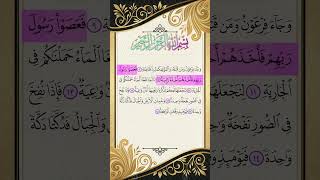 بِسْمِ اللَّهِ الرَّحْمَٰنِ الرَّحِيمِ
وَجَآءَ فِرْعَوْنُ وَمَن قَبْلَهُۥ وَٱلْمُؤْتَفِكَٰتُ بِٱلْخَاطِئَةِ ٩ فَعَصَوْا۟ رَسُولَ
رَبِّهِمْ فَأَخَذَهُمْ أَخْذَةً رَّابِيَةً ١٠ إِنَّا لَمَّا طَغَا ٱلْمَآءُ حَمَلْنَٰكُمْ فِى
ٱلْجَارِيَةِ ١١ لِنَجْعَلَهَا لَكُمْ تَذْكِرَةً وَتَعِيَهَآ أُذُنٌ وَٰعِيَةٌ ١٢ فَإِذَا نُفِخَ
فِى ٱلصُّورِ نَفْخَةٌ وَٰحِدَةٌ ١٣ وَحُمِلَتِ ٱلْأَرْضُ وَٱلْجِبَالُ فَدُكَّتَا دَكَّةً
وَٰحِدَةً ١٤ فَيَوْمَئِذٍ وَقَعَتِ ٱلْوَاقِعَةُ ١٥